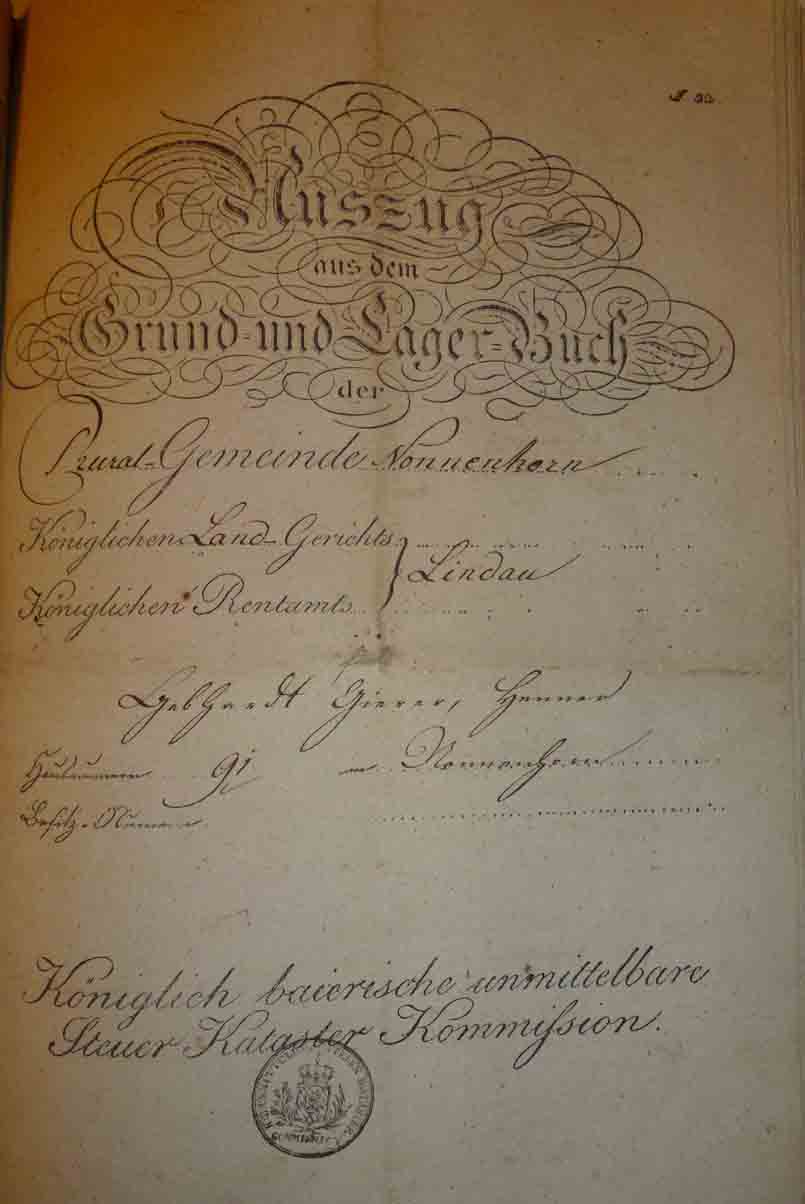 Auszug
aus dem
Grund- und Lager-Buch
der
Rural-Gemeinde Nonnenhorn
Königlichen Land-Gerichts
Lindau
Königlichen Rentamts
Gebhardt Gierer,
Hausnummer 91 in Nonnenhorn
Besitz-Numero
Königlich baierische unmittelbare
Steuer Kataster Kommission.